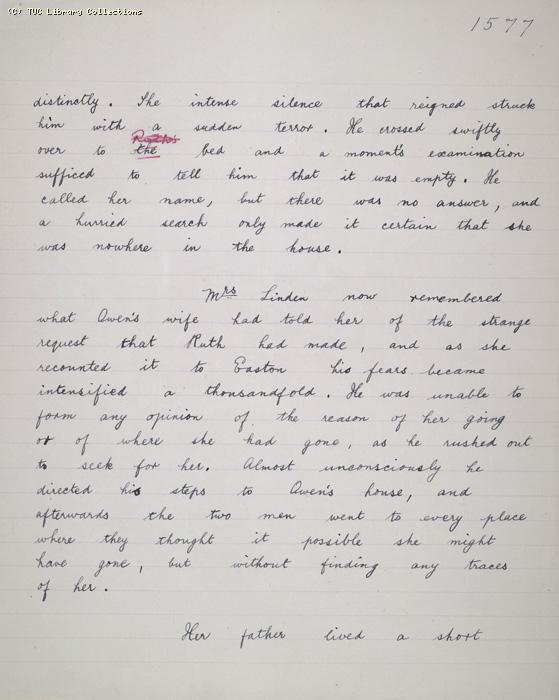 (C) TUC Library Collections
1577
distinctly. The intense silence that reigned struck
him with a sudden terror. He crossed swiftly
Ruth's
over to the bed and a moment's examination
sufficed to tell him that it was empty. He
called her name, but there was no answer, and
a hurried search only made it certain that she
was nowhere in the house.
Mrs Linden now remembered
what Owen's wife had told her of the strange
request that Ruth had made, and as she
recounted it to Easton his fears became
intensified a thousandfold. He was unable to
form any opinion of the reason of her going
or of where she had gone, as he rushed out
to seek for her. Almost unconsciously he
directed his steps to Owen's house, and
afterwards the two men went to every place
where they thought it possible she might
have gone, but without finding any traces
of her.
Her father lived a short